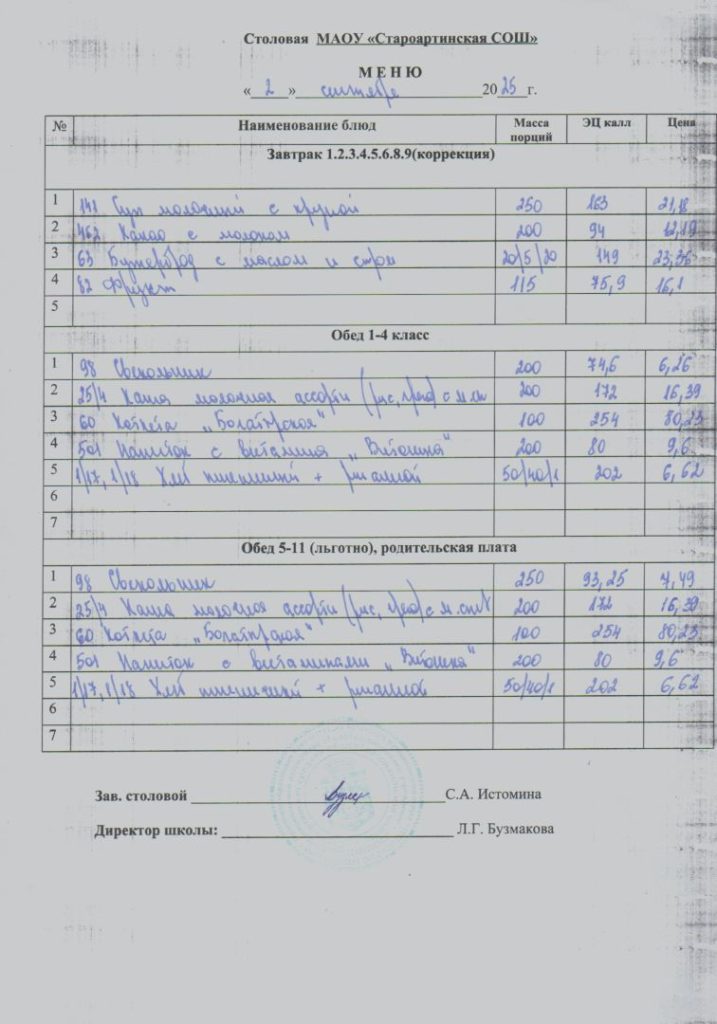 Столовая МАОУ «Староартинская СОШ»
М Е Н Ю
« 2 » сентября 2025 г.
№ Наименование блюд Масса порций ЭЦ калл Цена
Завтрак 1.2.3.4.5.6.8.9(коррекция)
1 141 Суп молочный с крупой 250 163 21,18
2 462 Какао с молоком 200 94 12,19
3 63 Бутерброд с маслом и сыром 20/5/20 149 23,36
4 82 Фрукт 115 75,9 16,1
5
Обед 1-4 класс
1 98 Свекольник 200 74,6 6,26
2 25/4 Каша молочная ассорти (рис, греч) с м.сл 200 172 16,39
3 60 Котлета „Богатырская" 100 254 80,23
4 501 Напиток с витамина „Витошка" 200 80 9,6
5 1/17, 1/18 Хлеб пшеничный + ржаной 50/40/1 202 6,62
6
7
Обед 5-11 (льготно), родительская плата
1 98 Свекольник 250 93,25 7,49
2 25/4 Каша молочная ассорти (рис, греч) с м. 200 172 16,39
3 60 Котлета „Богатырская" 100 254 80,23
4 501 Напиток с витаминами „Витошка" 200 80 9,6
5 1/17, 1/18 Хлеб пшеничный + ржаной 50/40/1 202 6,62
6
7
Зав. столовой С.А. Истомина
Директор школы: Л.Г. Бузмакова